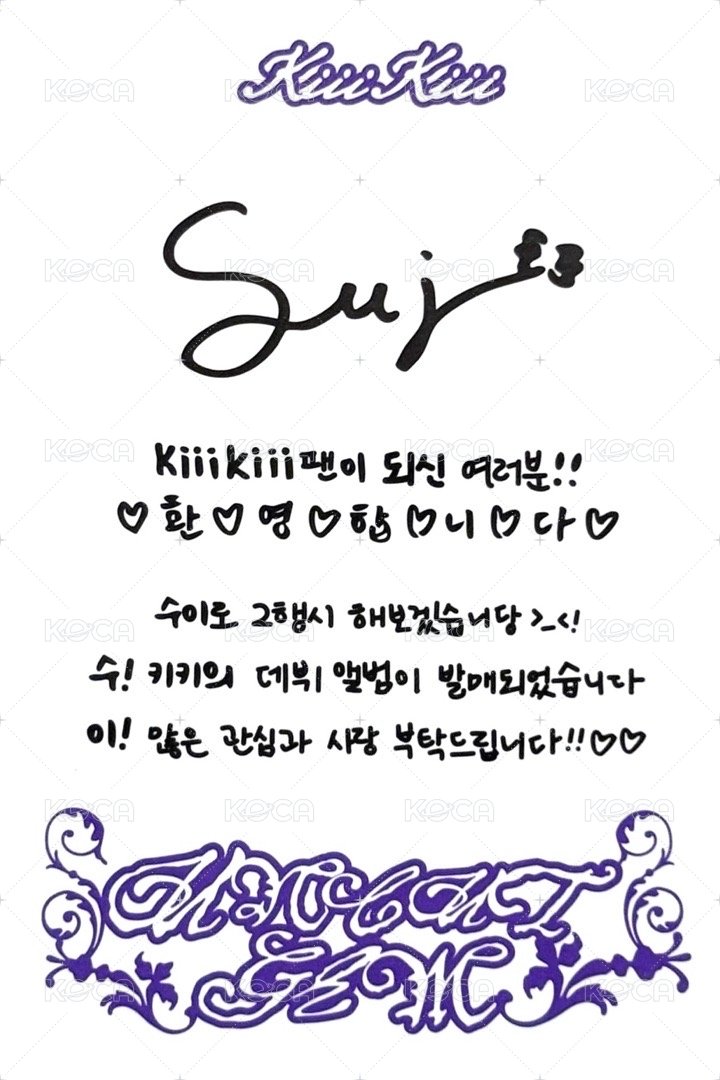 KiiiKiii
Sui
KiiiKiii팬이 되신 여러분!!
♡환♡영♡합♡니♡다♡
수이로 2행시 해보겠습니당 >_<!
수! 키키의 데뷔 앨범이 발매되었습니다
이! 많은 관심과 사랑 부탁드립니다!!♡♡
UNCUT
GEM
KOCA